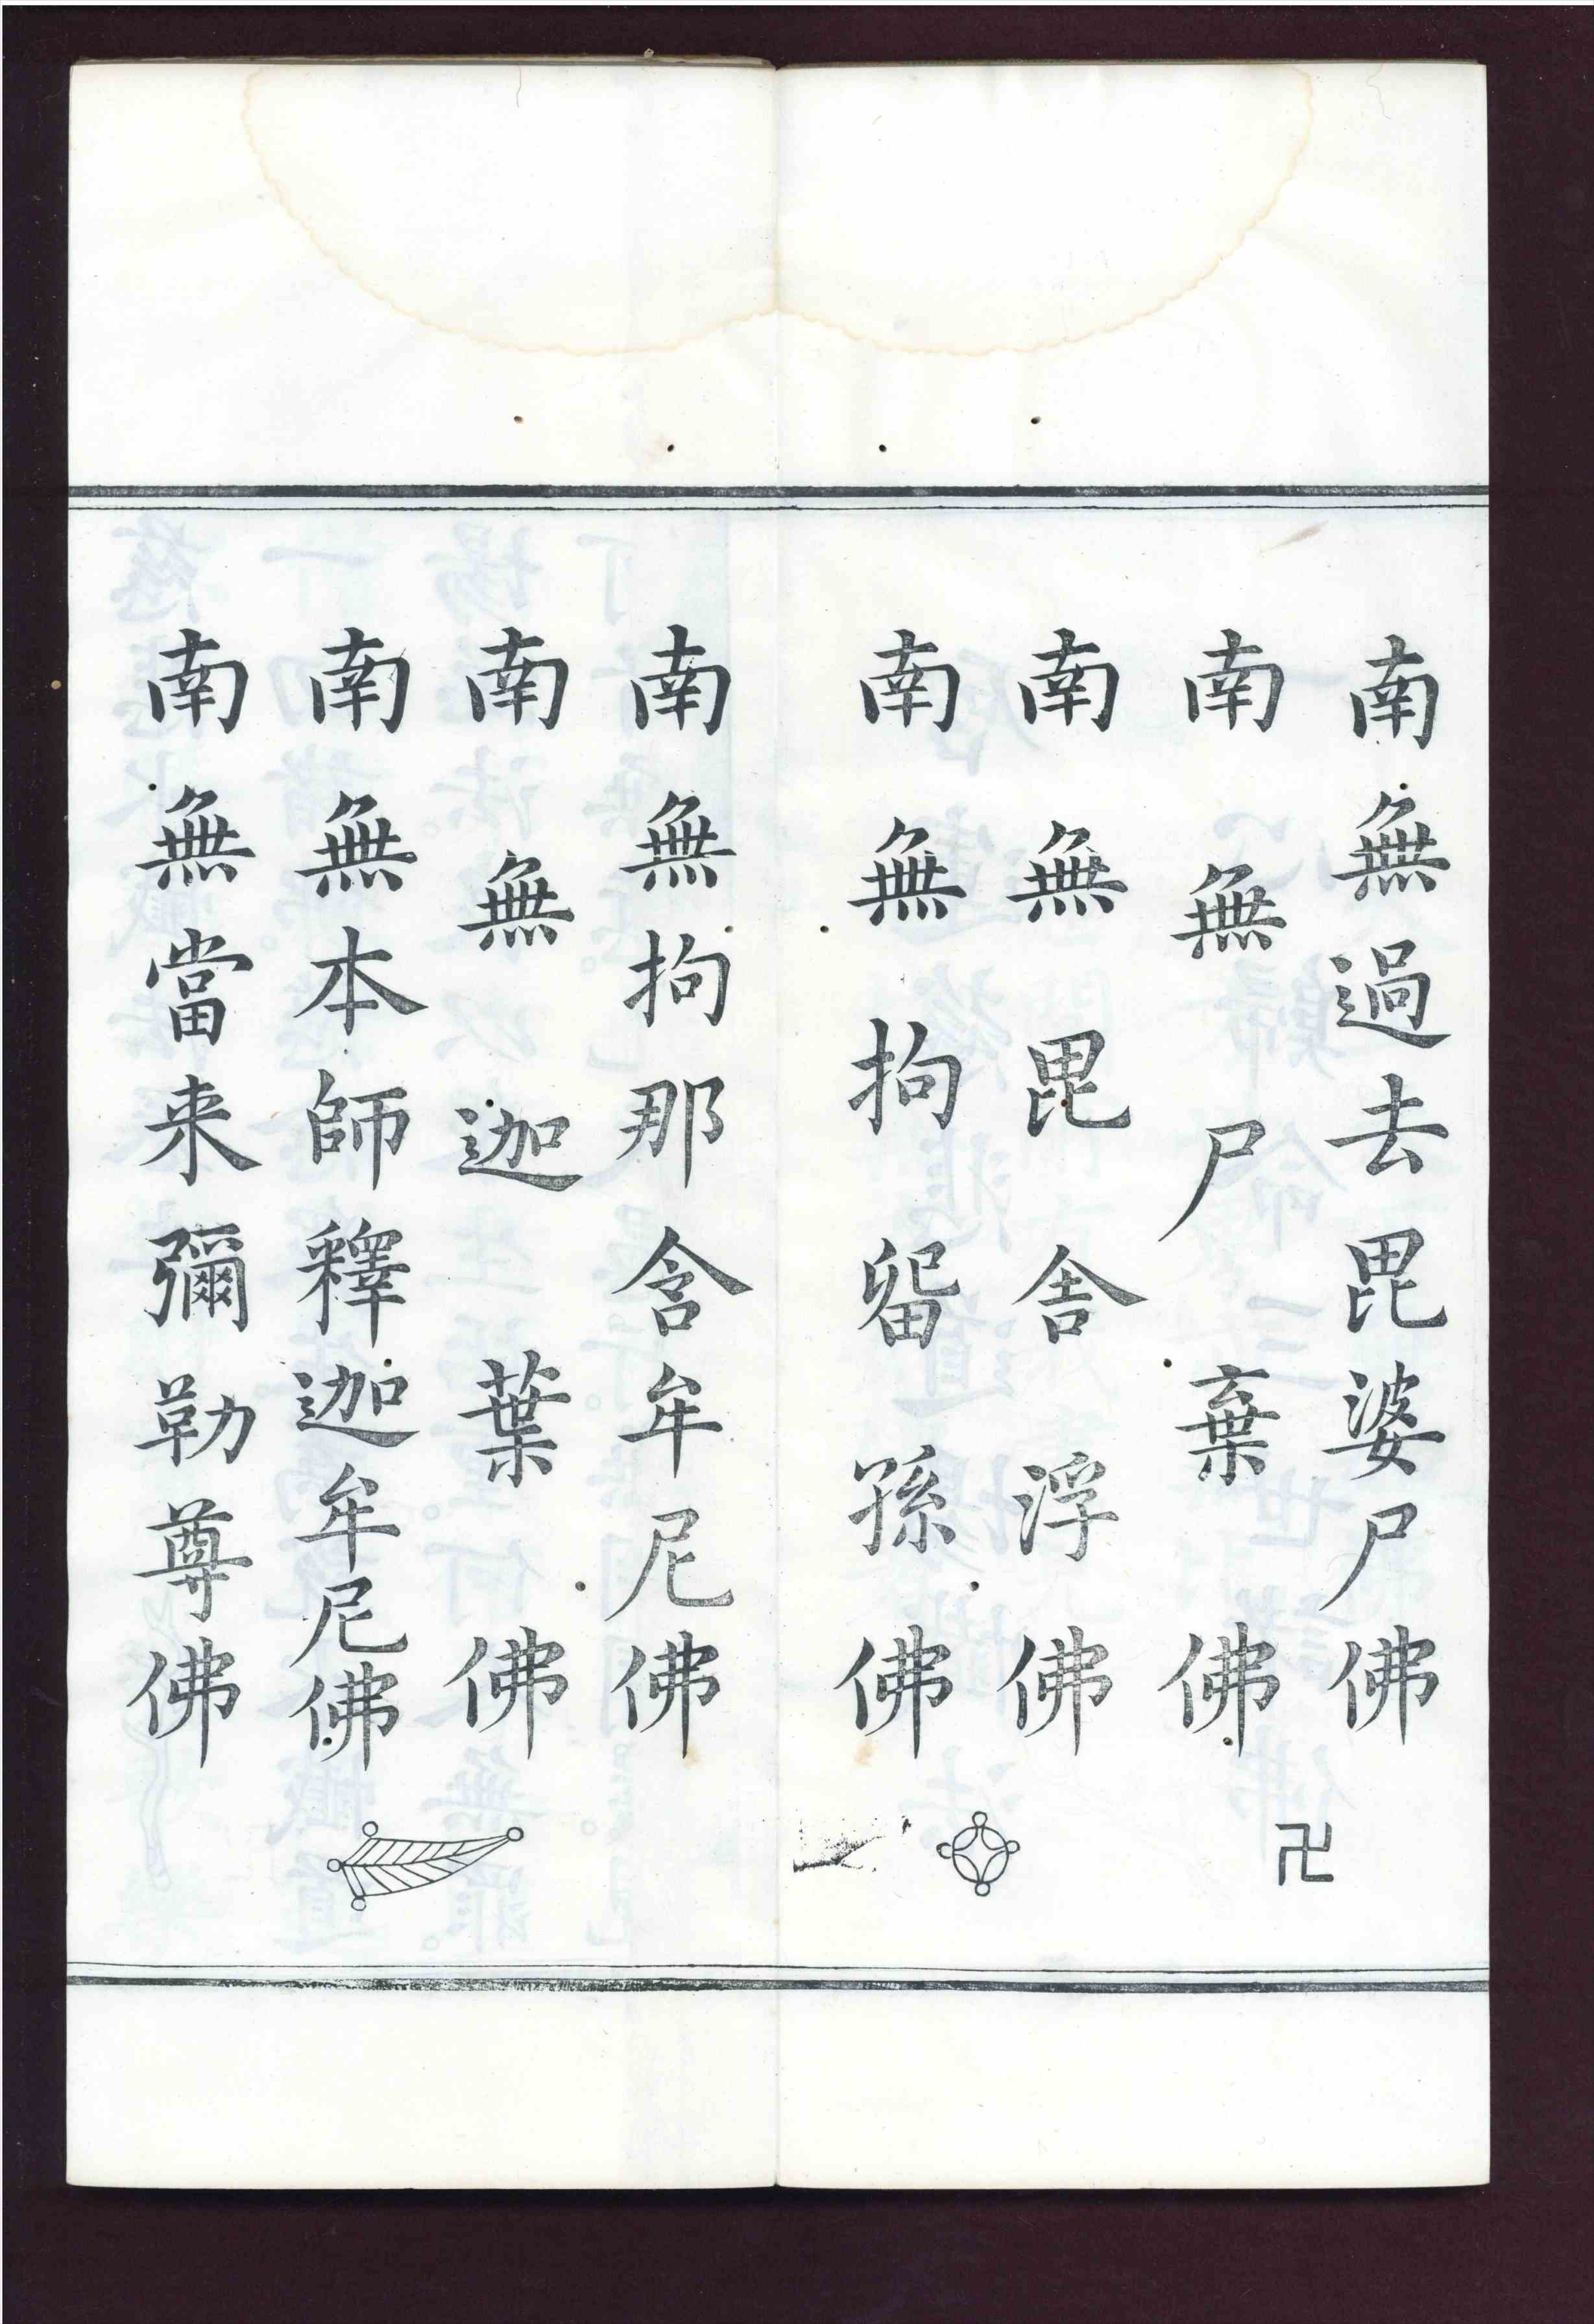 南無過去毘婆尸佛
南無尸棄佛
南無毘舍浮佛
南無拘留孫佛
南無拘那含牟尼佛
南無迦葉佛
南無本師釋迦牟尼佛
南無當来彌勒尊佛
卍